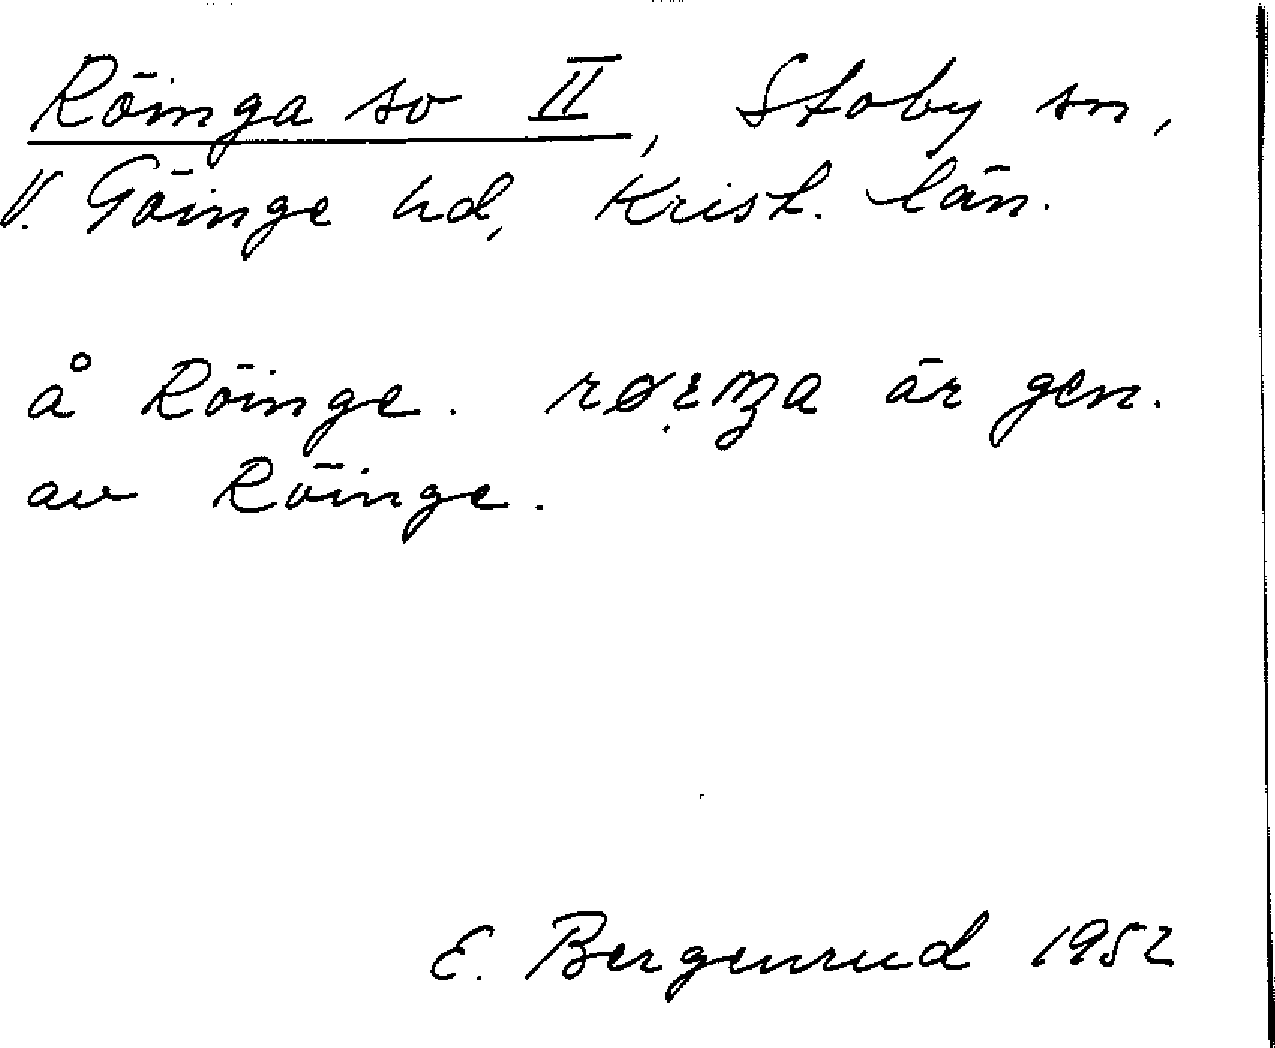 Röinga so II, Stoby sn,
V. Göinge hd, Krist. län.
å Röinge. är gen.
av Röinge.
E. Bergenrud 1952